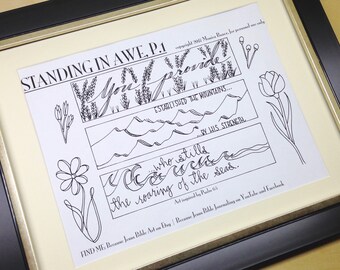 STANDING IN AWE, P.1
copyright Monica Bruce, for personal use only
You provide
ESTABLISHED THE MOUNTAINS...
BY HIS STRENGTH...
who stills
the roaring of the seas
Art inspired by Psalm 65
FIND ME: Because Jesus Bible Art on Etsy | Because Jesus Bible Journaling on YouTube and Facebook